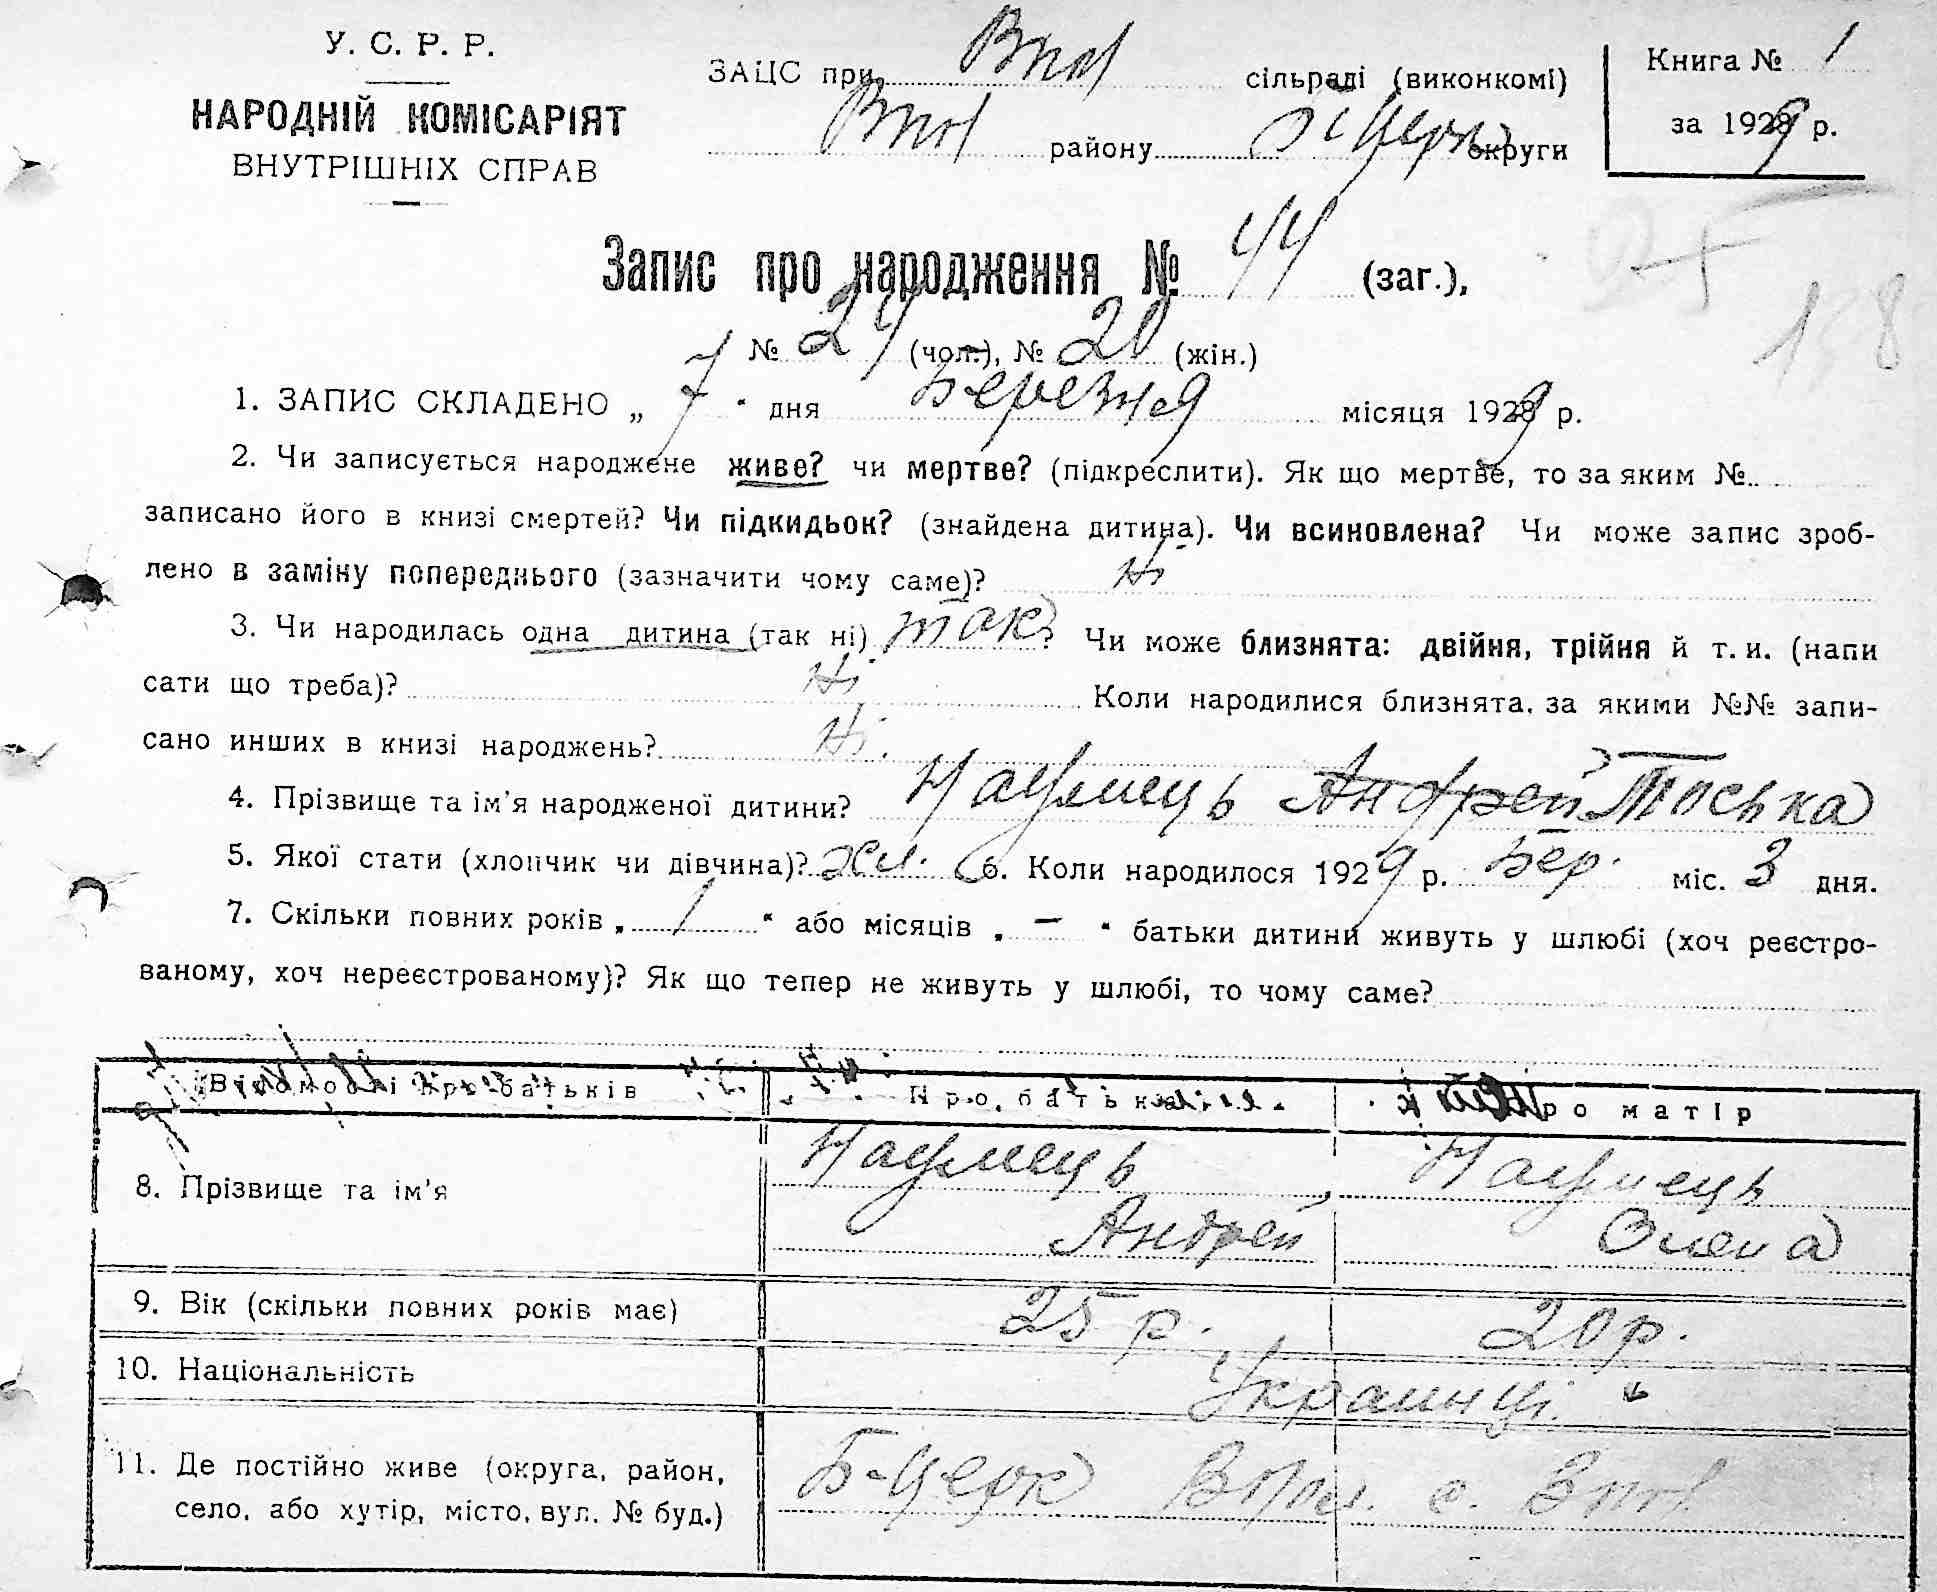 У. С. Р. Р.
НАРОДНІЙ КОМІСАРІЯТ
ВНУТРІШНІХ СПРАВ
ЗАЦС при сільраді (виконкомі)
району Б Церкв округи
Книга № 1
за 1929 р.
Запис про народження № 44 (заг.),
№ 24 (чол.), № 20 (жін.)
1. ЗАПИС СКЛАДЕНО „ 7 “ дня Березня місяця 1929 р.
2. Чи записується народжене живе? чи мертве? (підкреслити). Як що мертве, то за яким №
записано його в книзі смертей? Чи підкидьок? (знайдена дитина). Чи всиновлена? Чи може запис зроб-
лено в заміну попереднього (зазначити чому саме)? Ні
3. Чи народилась одна дитина (так ні) так? Чи може близнята: двійня, трійня й т. и. (напи
сати що треба)? Ні Коли народилися близнята, за якими №№ запи-
сано инших в книзі народжень? Ні.
4. Прізвище та ім'я народженої дитини? Наумець Андрей Тоська
5. Якої стати (хлопчик чи дівчина)? жін. 6. Коли народилося 1929 р. Бер. міс. 3 дня.
7. Скільки повних років „ 1 “ або місяців „ — “ батьки дитини живуть у шлюбі (хоч реєстро-
ваному, хоч нереєстрованому)? Як що тепер не живуть у шлюбі, то чому саме?
Відомості про батьків Про батька Про матір
8. Прізвище та ім'я Наумець Андрей Наумець Олена
9. Вік (скільки повних років має) 25 р. 20 р.
10. Національність Украинці
11. Де постійно живе (округа, район,
село, або хутір, місто, вул. № буд.) Б-Церк с.